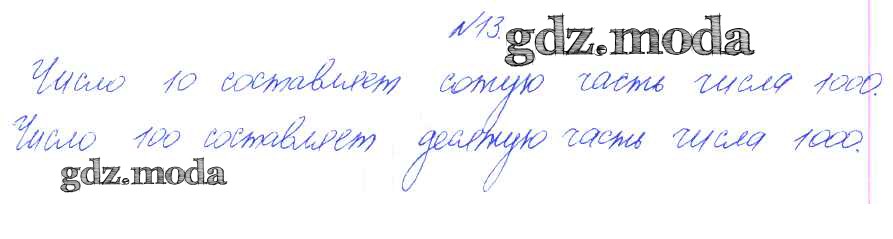 №13. gdz.moda
Число 10 составляет сотую часть числа 1000.
Число 100 составляет десятую часть числа 1000.
gdz.moda